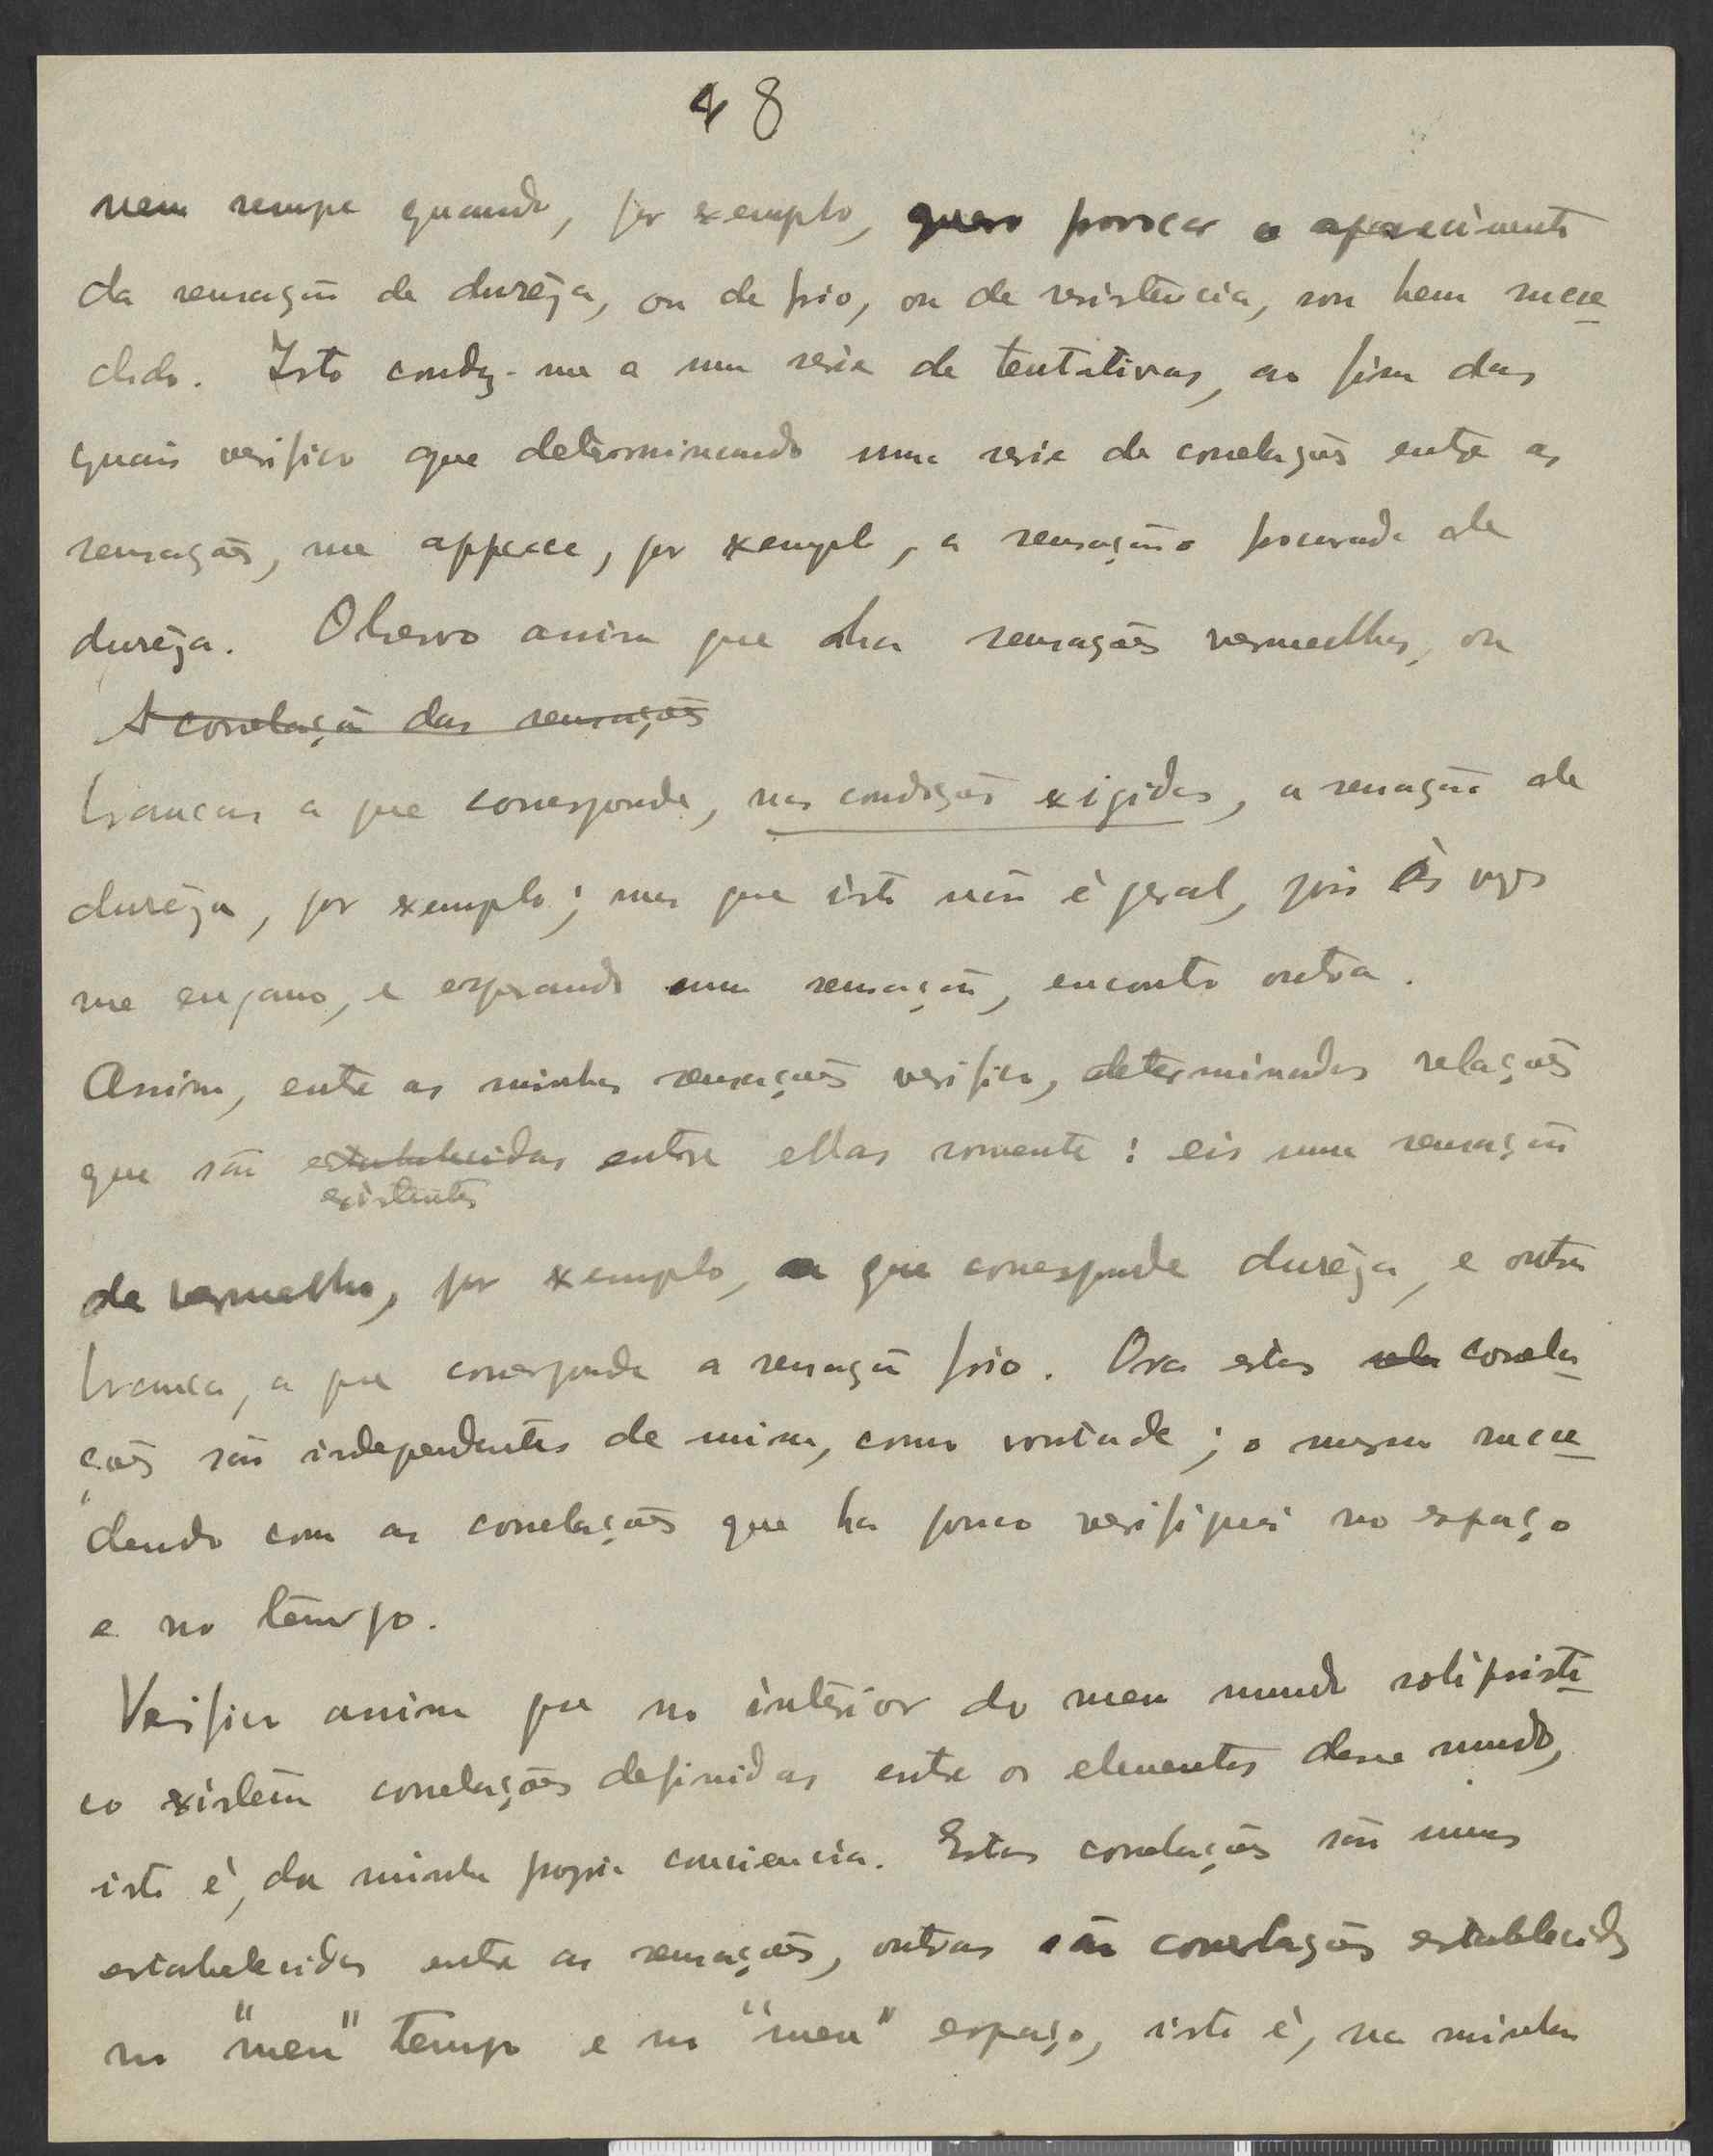 48
nem sempre quando, por exemplo, quero provocar o aparecimento
da sensação de durêza, ou de frio, ou de resistência, sou bem suce
dido. Isto conduz-me a uma serie de tentativas, ao fim das
quais verifico que determinando uma serie de correlações entre as
sensações, me apparece, por exemplo, a sensação procurada de
durêza. Observo assim que ha sensações vermelhas, ou
A correlação das sensações
brancas a que corresponde, nas condições exigidas, a sensação de
durêza, por exemplo; mas que isto não é geral, pois ás vezes
me engano, e esperando uma sensação, encontro outra.
Assim, entre as minhas sensações verifico, determinadas relações
que são estabelecidas entre ellas somente: eis uma sensação
existentes
de vermelho, por exemplo, a que corresponde durêza, e outra
branca, a que corresponde a sensação frio. Ora estas rela correla
ções são independentes de mim, como vontade; o mesmo suce
dendo com as correlações que ha pouco verifiquei no espaço
e no tempo.
Verifico assim que no interior do meu mundo solipsisti
co existem correlações definidas entre os elementos desse mundo,
isto é, da minha propria consciencia. Estas correlações são umas
estabelecidas entre as sensações, outras são correlações estabelecidas
no "meu" tempo e no "meu" espaço, isto é, na minha